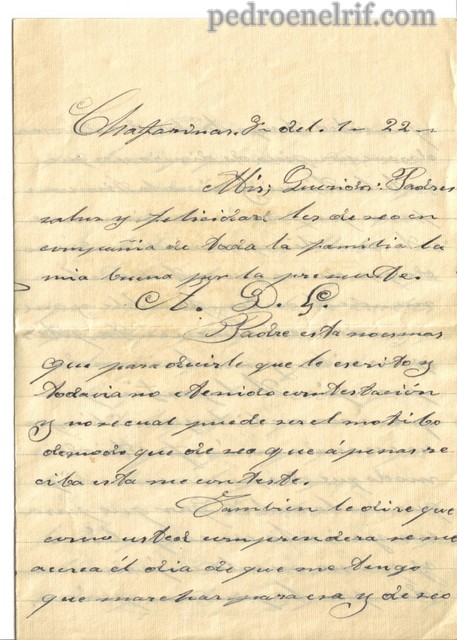 pedroenelrif.com
Chafarinas. 3- del. 1- 22-
Mis; Queridos: Padres
salux y felicidad les deseo en
compañia de toda la familia la
mia buena por la presente.
A. D. G.
Padre esta noesmas
que para dicirle que le escrito y
todavia no etenido contestación
y nose cual puede ser el motibo
demodo que deseo que ápenas re
ciba esta me conteste.
Tambien le dire que
como usted comprendera se me
acerca él dia de que me tengo
que marchar para esa y deseo